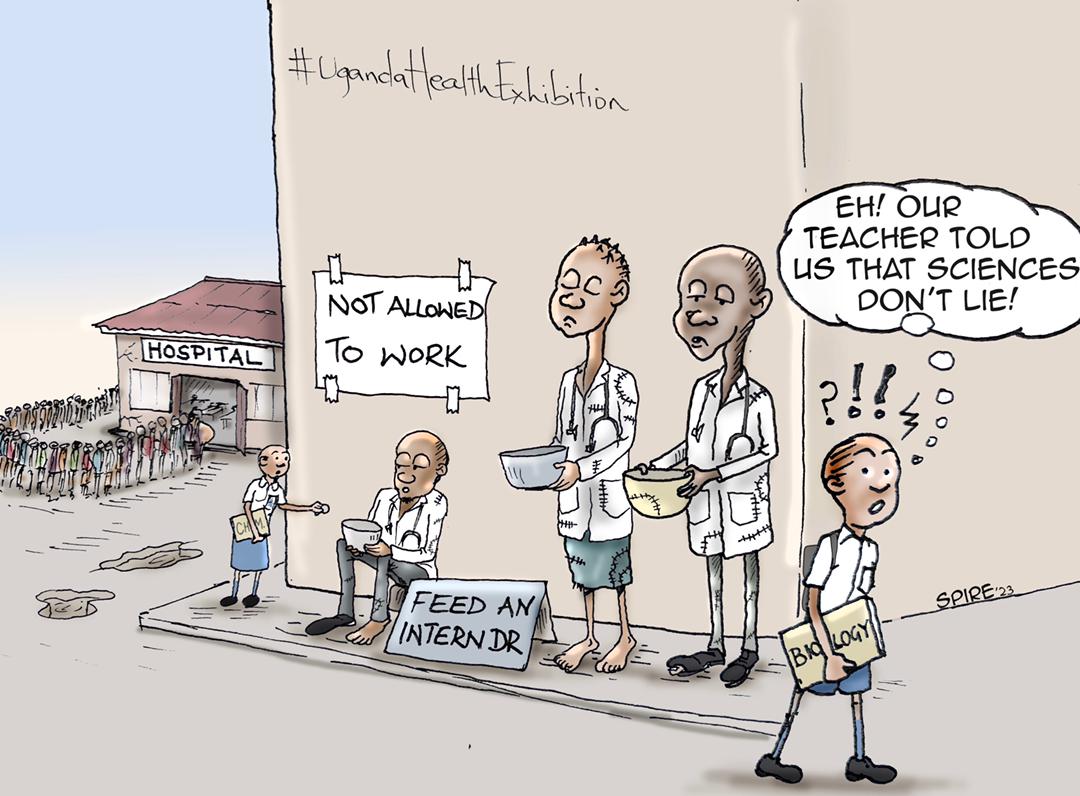 #UgandaHealthExhibition
EH! OUR
TEACHER TOLD
US THAT SCIENCES
DON'T LIE!
NOT ALLOWED
TO WORK
HOSPITAL
? ! !
CHEM.
FEED AN
INTERN DR
BIOLOGY
SPIRE'23